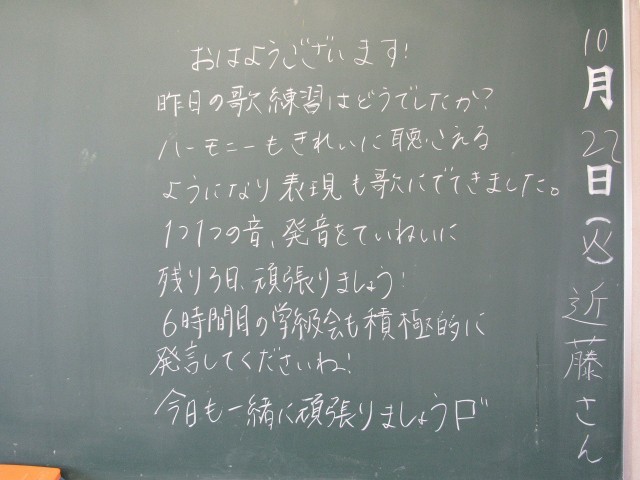 おはようございます!
昨日の歌練習はどうでしたか?
ハーモニーもきれいに聴こえる
ようになり表現も歌にでてきました。
1つ1つの音、発音をていねいに
残り3日、頑張りましょう!
6時間目の学級会も積極的に
発言してくださいね!
今日も一緒に頑張りましょう
10月22日(火)近藤さん